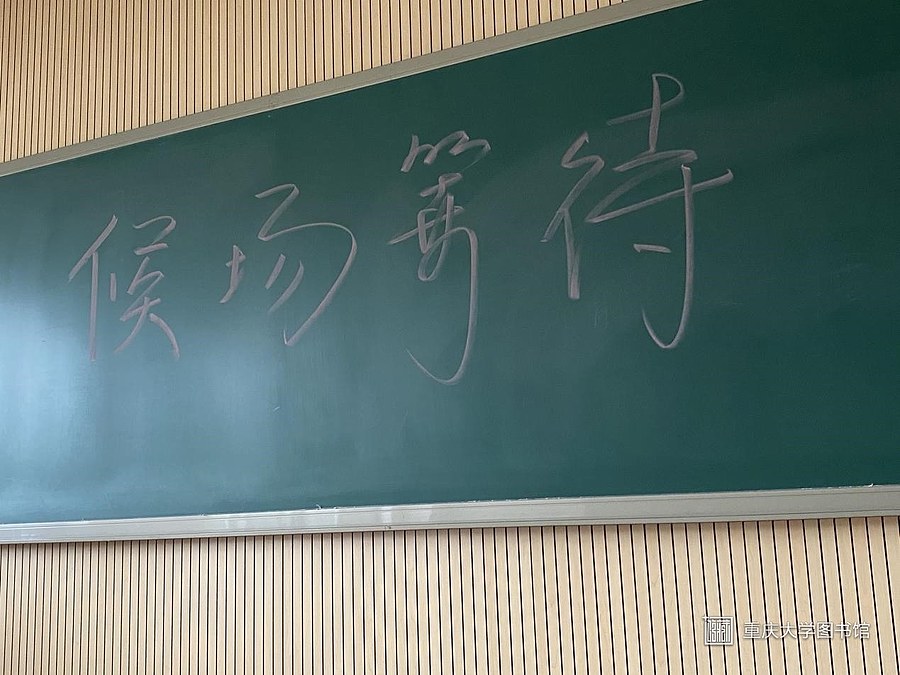 候场等待
重庆大学图书馆